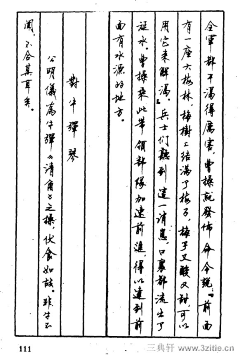 全军都干渴得厉害，曹操就发佈命令说：“前面
有一座大梅林，梅树上结满了梅子，梅子又酸又甜，可以
用它来解渴。”兵士们听到这一消息，口里都流出了
涎水，曹操乘此率领部队加速前进得以达到前
面有水源的地方。
對牛彈琴
公明儀為牛彈《清角》之操，伏食如故。非牛不
聞，不合其耳矣。
111
三典轩 www.3zitie.cn